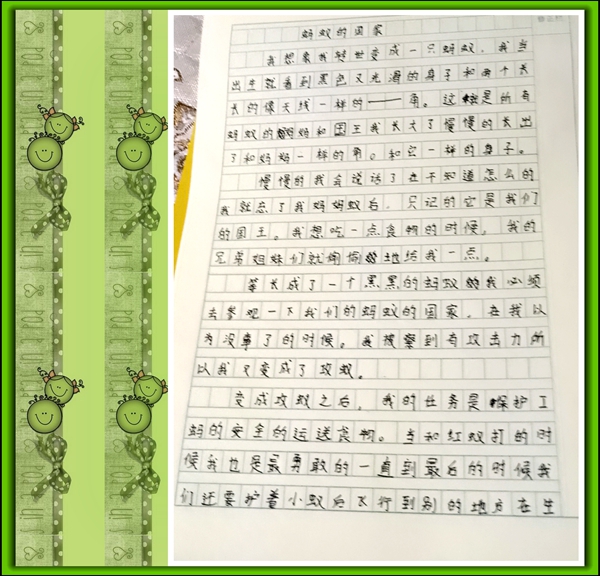 蚂蚁的国家
我想象我转世变成一只蚂蚁,我当
出生就看到黑色又光滑的身子和两个长
长的像天线一样的——角。这就是所有
蚂蚁的妈妈和国王我长大了慢慢的长出
了和妈妈一样的角。和它一样的身子。
慢慢的我会说话了在不知道怎么的
我就忘了我妈妈蚁后,只记的它是我们
的国王。我想吃一点食物的时候,我的
兄弟姐妹们就偷偷地给我一点。
等长成了一个黑黑的蚂蚁我必须
去参观一下我们的蚂蚁的国家,在我以
为没事了的时候。我被蛰到有攻击力所
以我又变成了攻蚁。
变成攻蚁之后,我的任务是保护工
蚂的安全的运送食物。当和红蚁打的时
候我也是最勇敢的一直到最后的时候我
们还要护着小蚁后飞行到别的地方在生